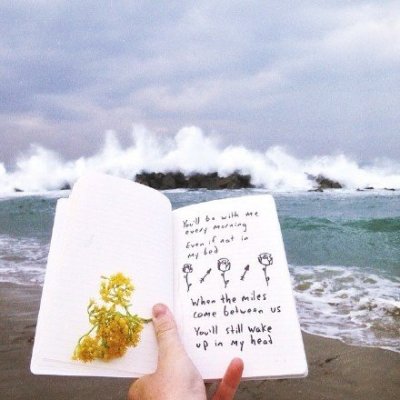 You'll be with me
every morning
Even if not in
my bed
When the miles
come between us
You'll still wake
up in my head